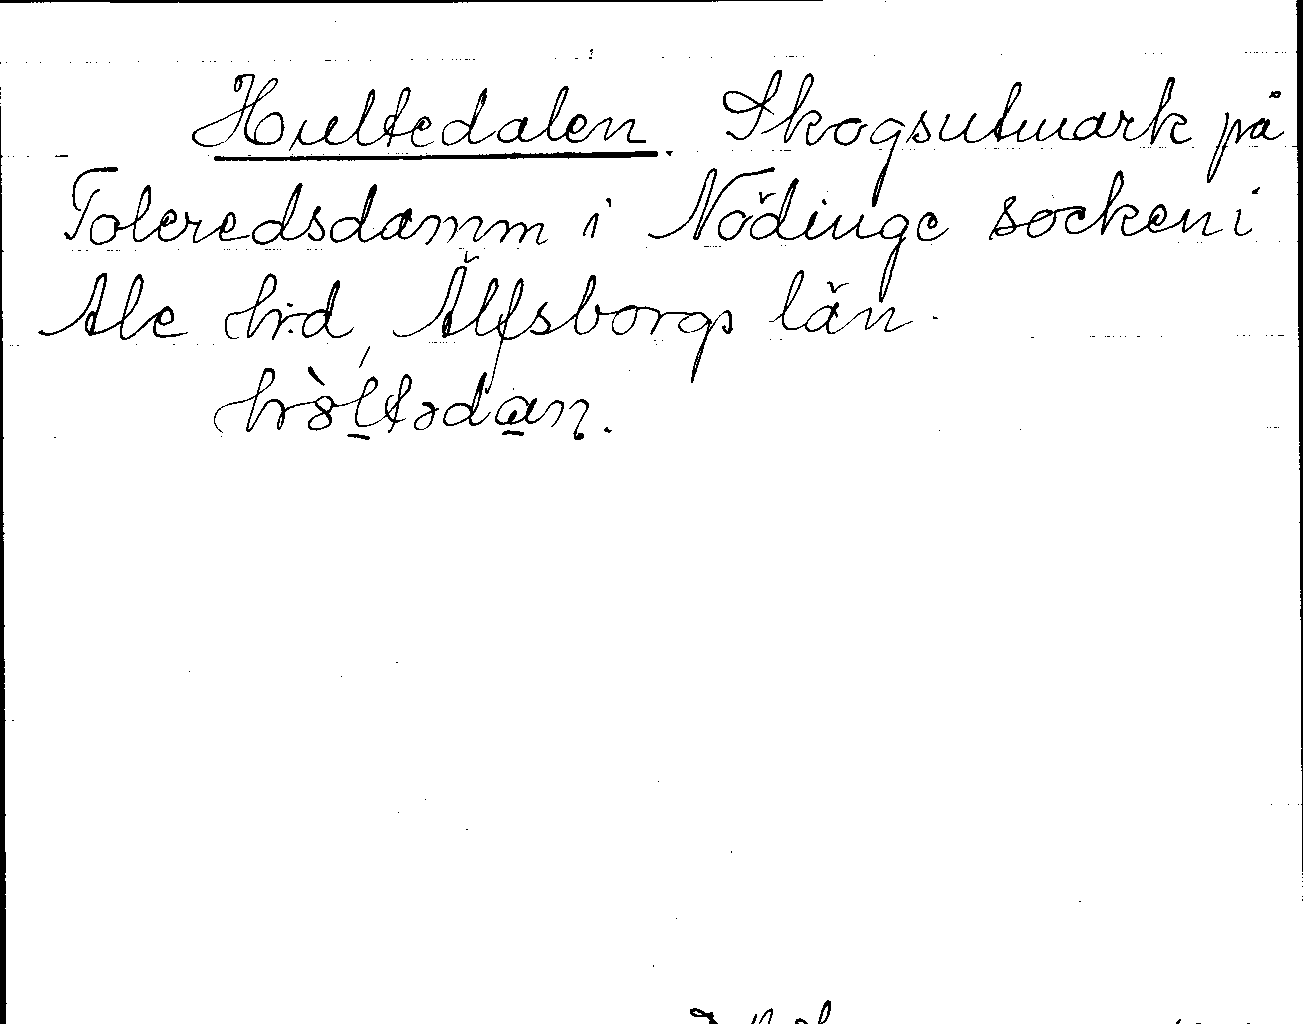 Hultedalen. Skogsutmark på
Toleredsdamm i Nödinge socken i
Ale hrd, Älfsborgs län.